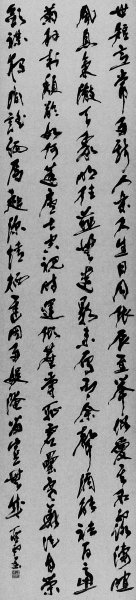 世短意常多斯人樂久生日月依辰至舉俗愛其名露淒暄
風息氣澈天象明往燕無遺影來雁有餘聲酒能祛百慮
菊解制頹齡如何蓬廬士空視時運傾塵爵恥虛罍寒華徒自榮
斂襟獨閒謠緬焉起深情棲遲固多娛淹留豈無成